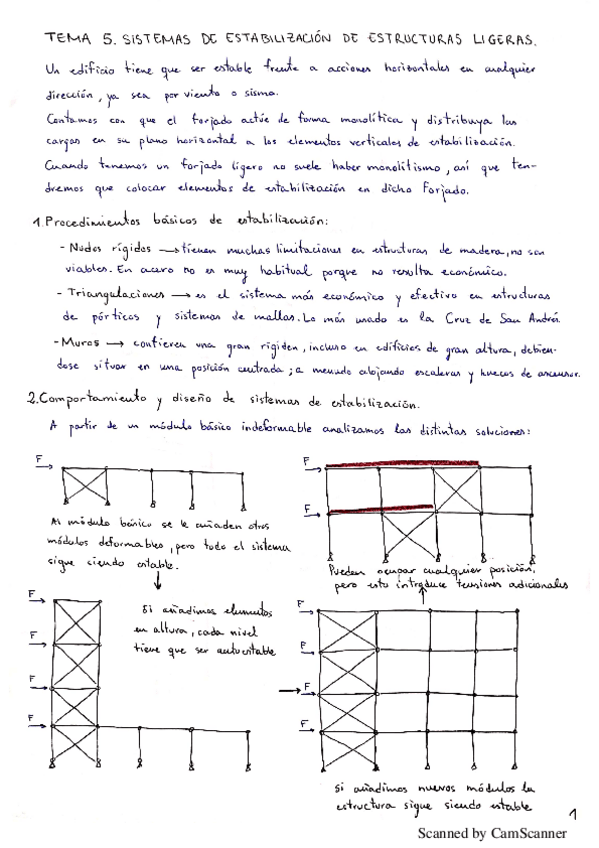 TEMA 5. SISTEMAS DE ESTABILIZACIÓN DE ESTRUCTURAS LIGERAS.
Un edificio tiene que ser estable frente a acciones horizontales en cualquier
dirección, ya sea por viento o sismo.
Contamos con que el forjado actúe de forma monolítica y distribuya las
cargas en su plano horizontal a los elementos verticales de estabilización.
Cuando tenemos un forjado ligero no suele haber monolitismo, así que ten-
dremos que colocar elementos de estabilización en dicho forjado.
1. Procedimientos básicos de estabilización:
- Nudos rígidos → tienen muchas limitaciones en estructuras de madera, no son
viables. En acero no es muy habitual porque no resulta económico.
- Triangulaciones → es el sistema más económico y efectivo en estructuras
de pórticos y sistemas de mallas. Lo más usado es la Cruz de San Andrés.
- Muros → confieren una gran rigidez, incluso en edificios de gran altura, debien-
dose situar en una posición centrada; a menudo alojando escaleras y huecos de ascensor.
2. Comportamiento y diseño de sistemas de estabilización.
A partir de un módulo básico indeformable analizamos las distintas soluciones:
F
F
F
Al módulo básico se le añaden otros
módulos deformables, pero todo el sistema
sigue siendo estable.
Pueden ocupar cualquier posición,
pero esto introduce tensiones adicionales
F
F
F
F
Si añadimos elementos
en altura, cada nivel
tiene que ser autoestable
F
F
F
F
Si añadimos nuevos módulos la
estructura sigue siendo estable
1
Scanned by CamScanner